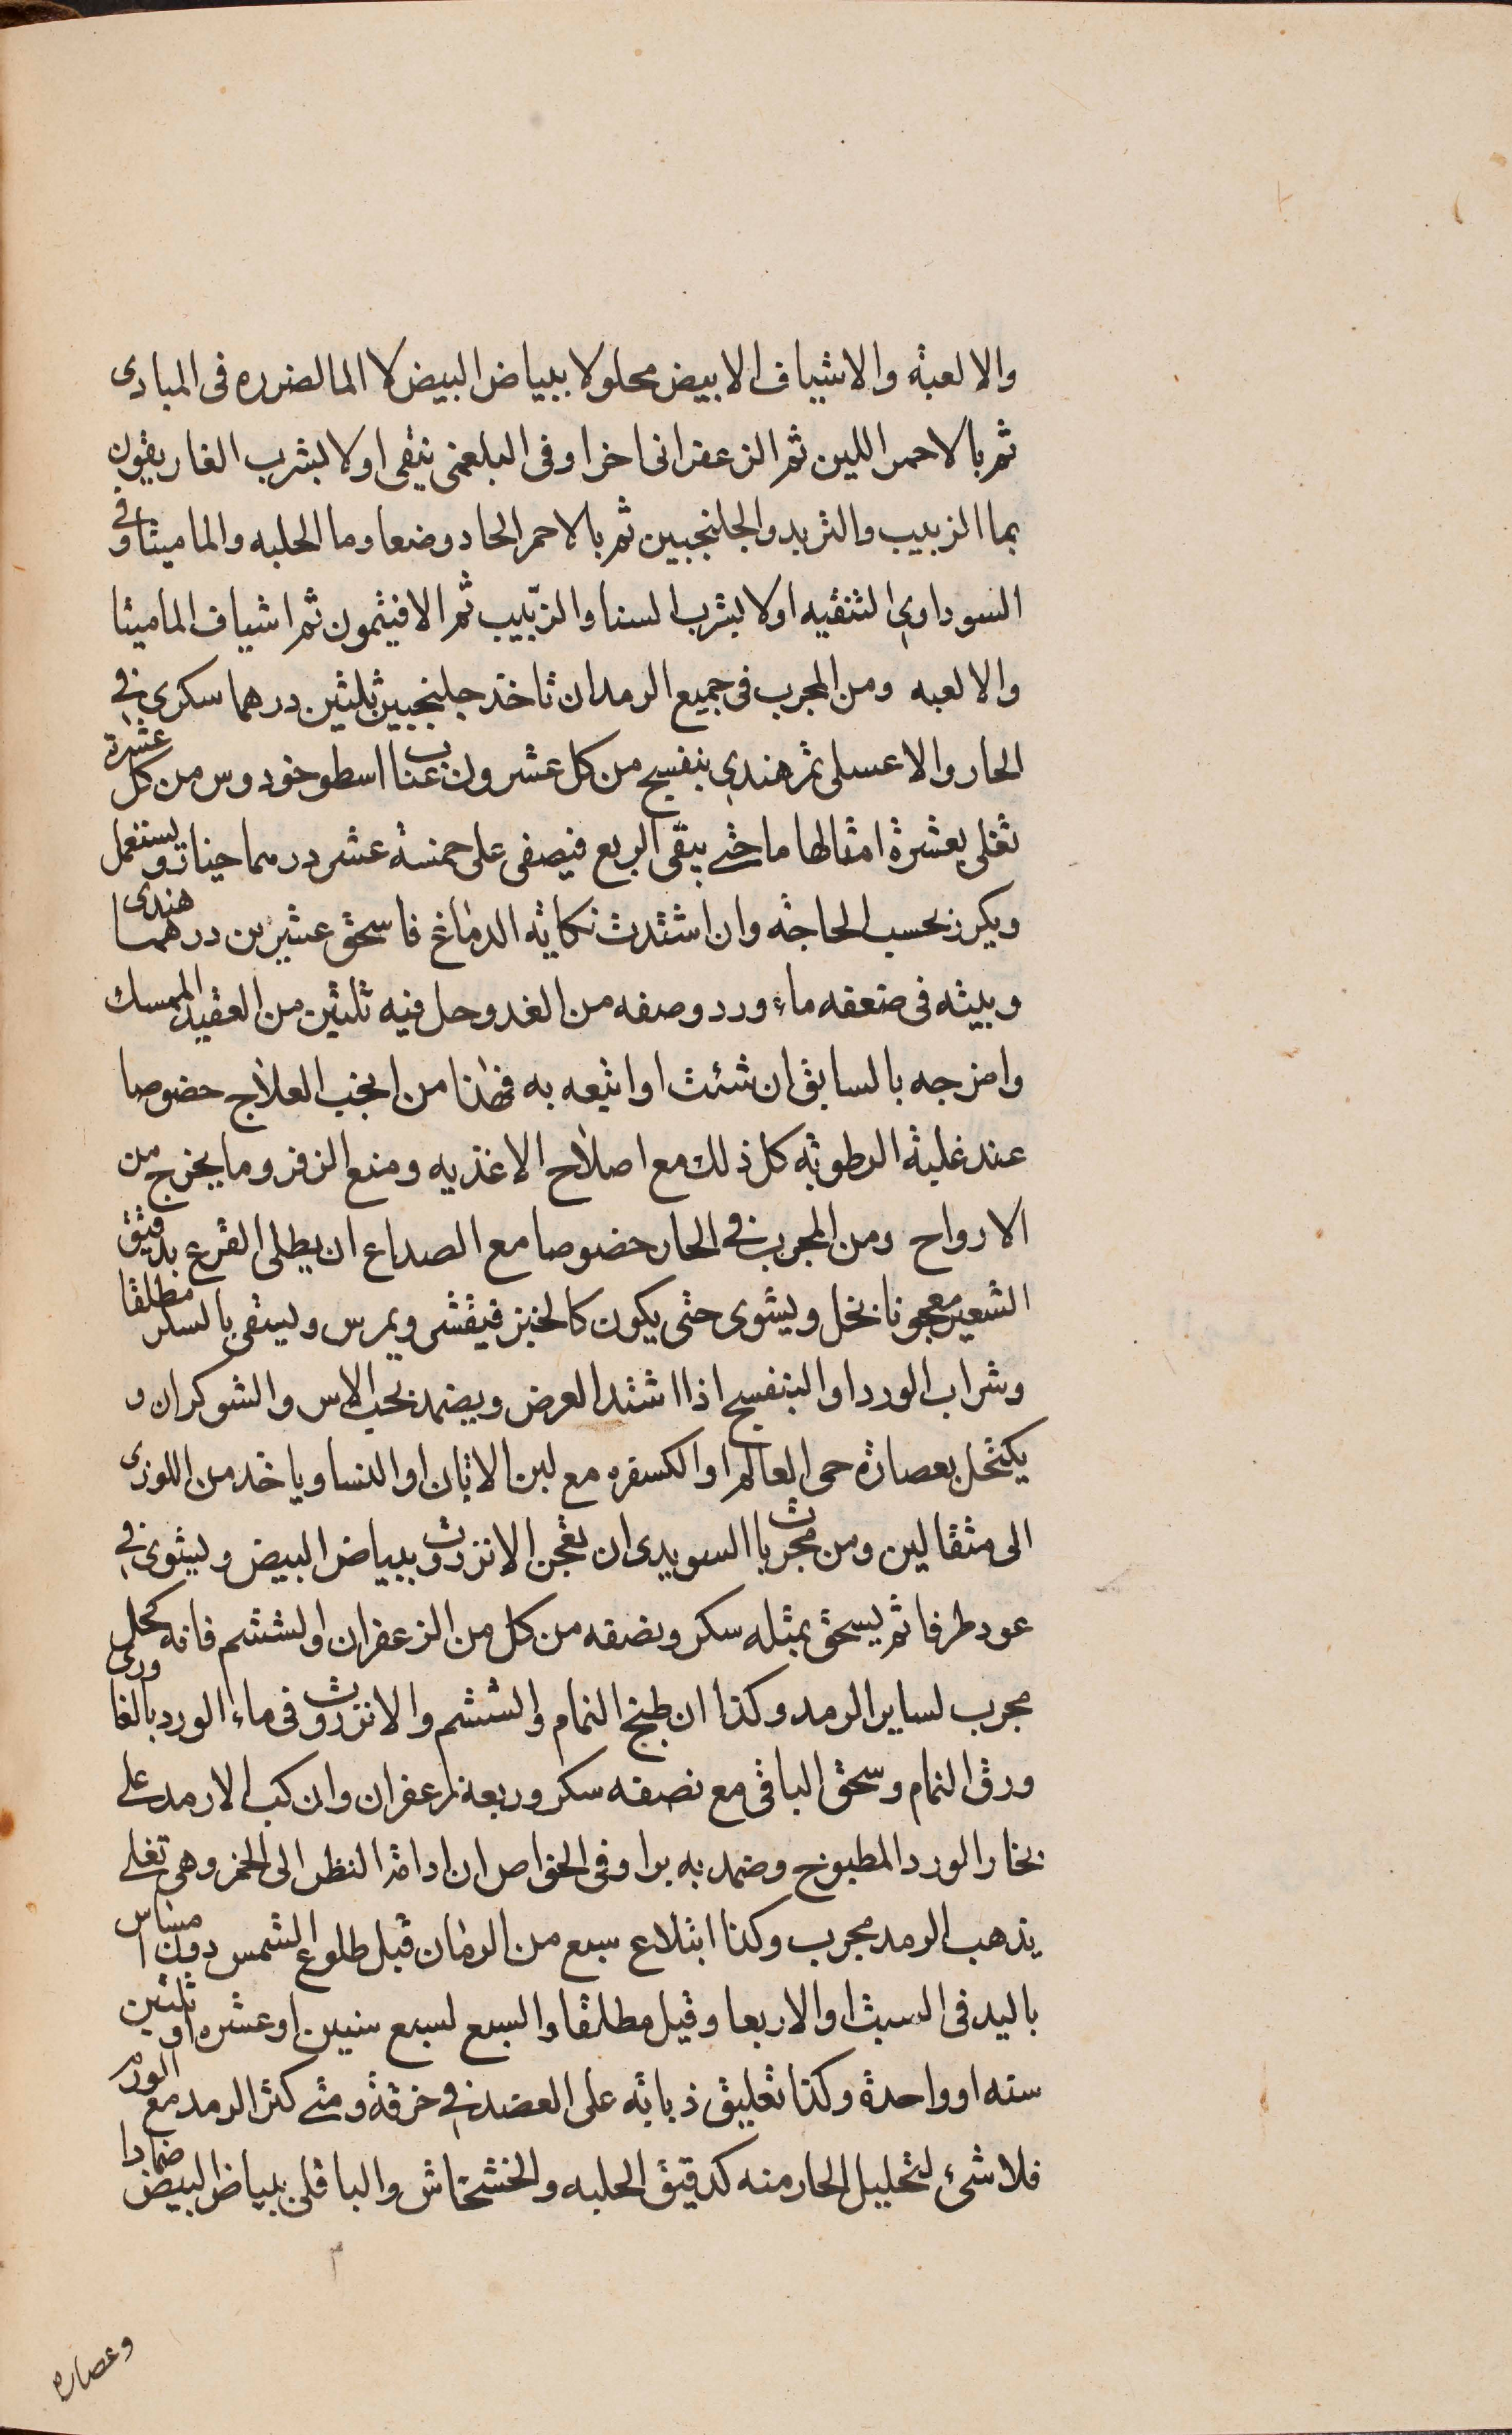 والالعبة والاشياف الابيض محلولا ببياض البيض لا الما لضرره فى المبادى
ثم بالاحمر اللين ثم الزعفرانى اخرا وفى البلغمى ينقى اولا بشرب الغاريقون
بما الزبيب والتربد والجلنجبين ثم بالاحمر الحاد وضعا وما الحلبه والماميثا وفى
السوداوى التنقيه اولا بشرب السنا والزبيب ثم الافيثمون ثم اشياف الماميثا
والالعبه ومن المجرب فى جميع الرمد ان تاخذ جلنجبين ثلثين درهما سكرى فى
الحار والا عسلى تمر هندى بنفسج من كل عشرون عناب اسطوخودوس من كل عشرة
تغلى بعشرة امثالها ما حتى يبقى الربع فيصفى على خمسة عشر درهما ويستعمل
ويكرر بحسب الحاجة وان اشتدت نكاية الدماغ فاسحق عشرين درهما هندى
وبيته فى ضعفه ماء ورد وصفه من الغد وحل فيه ثلثين من العقيد الممسك
وامزجه بالسابق ان شئت او اتبعه به فهذا من انجب العلاج خصوصا
عند غلبة الرطوبة كل ذلك مع اصلاح الاغذيه ومنع الزفر وما يخرج من
الارواح ومن المجرب فى الحار خصوصا مع الصداع ان يطلى القرع بدقيق
الشعير معجونا بخل ويشوى حتى يكون كالخبز فيقشر ويمرس ويسقى بالسكر مطلقا
وشراب الورد او البنفسج اذا اشتد العرض ويضمد بحب الاس والشوكران و
يكتحل بعصارة حى العالم او الكسفره مع لبن الاتان او النسا وياخذ من اللوزى
الى مثقالين ومن مجربات السويدى ان تعجن الانزروت ببياض البيض ويشوى فى
عود طرفا ثم يسحق بمثله سكر ونصفه من كل من الزعفران والششم فانه كحل
مجرب لساير الرمد وكذا ان طبخ النمام والششم والانزروت فى ماء الورد بالغا ورمى
ورق النمام وسحق الباقى مع نصفه سكر وربعه زعفران وان كب الارمد على
بخار الورد المطبوخ وضمد به برا وفى الخواص ان ادامة النظر الى الخمر وهى تغلى
يذهب الرمد مجرب وكذا ابتلاع سبع من الرمان قبل طلوع الشمس دون امساس
باليد فى السبت او الاربعا وقيل مطلقا والسبع لسبع سنين او عشره او ثلثين
سنه او واحدة وكذا تعليق ذبابة على العضد فى خرقة ومتى كثر الرمد مع الورم
فلا شئ لتحليل الحار منه كدقيق الحلبه والخشخاش والباقلى ببياض البيض ضمادا
وعصاره